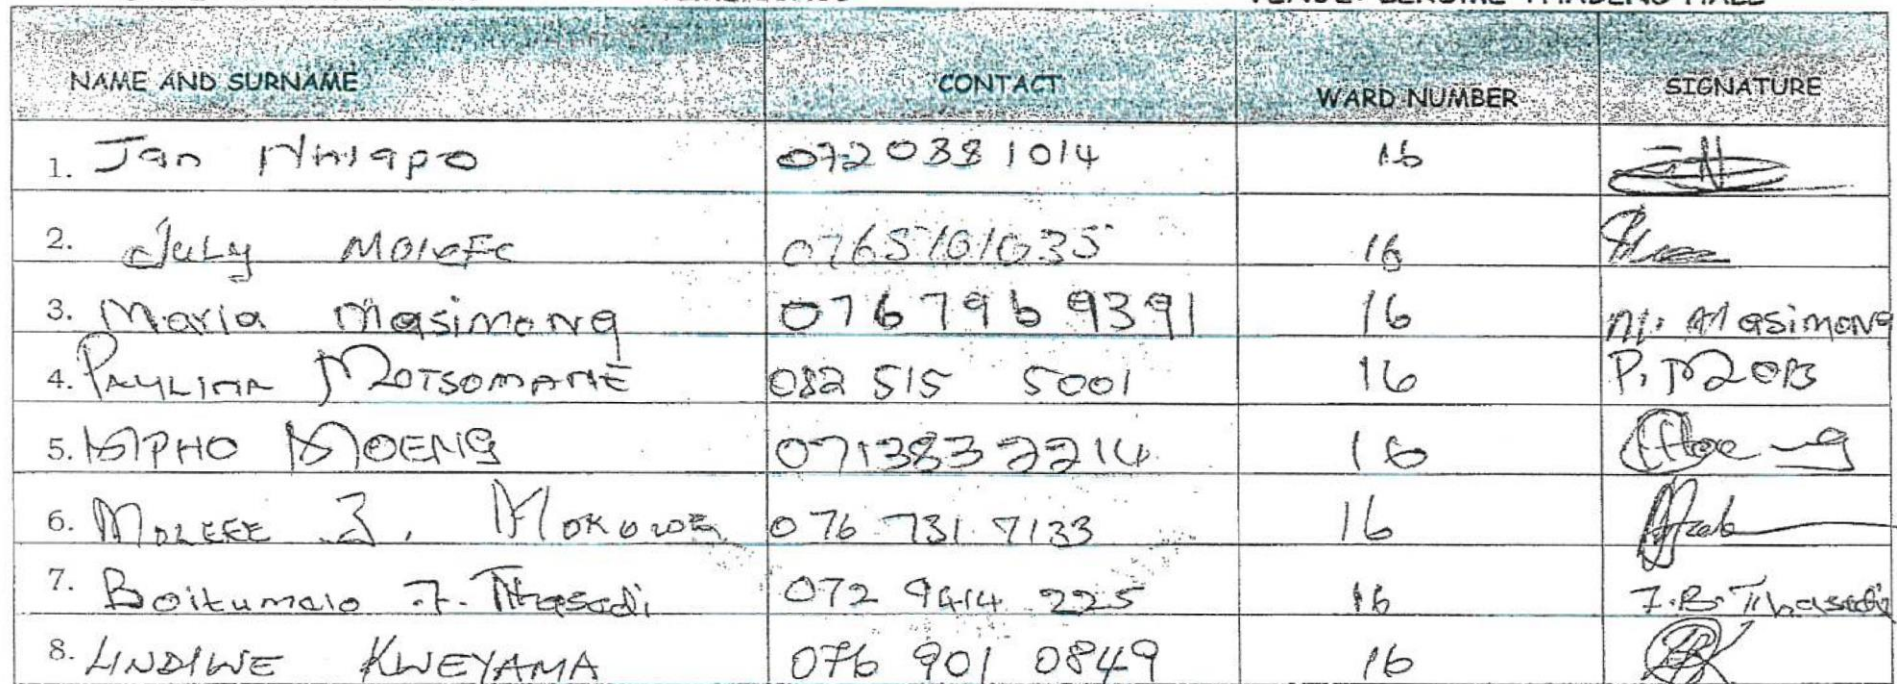 NAME AND SURNAME CONTACT WARD NUMBER SIGNATURE
1. Jan 0720381014 16
2. July Molefe 0765101035 16
3. Maria Masimong 076 796 9391 16 M. Masimong
4. PAULINA MOTSOMANE 082 515 5001 16
5. MPHO MOENG 0713832214 16
6. 076 731 7133 16
7. Boitumelo F. Tlhasedi 072 9414 225 16 F.B. Tlhasedi
8. LINDIWE KWEYAMA 076 901 0849 16